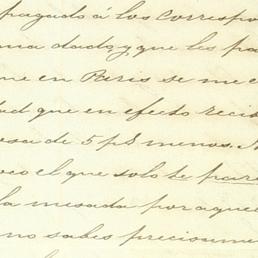 pagado á los Correspo
ma dado, y que les pa
me en Paris se me c
dad que en efecto reci
esa de 5 p8 menos. A
oco el que solo te pare
la mesada por aque
no sabes precisume